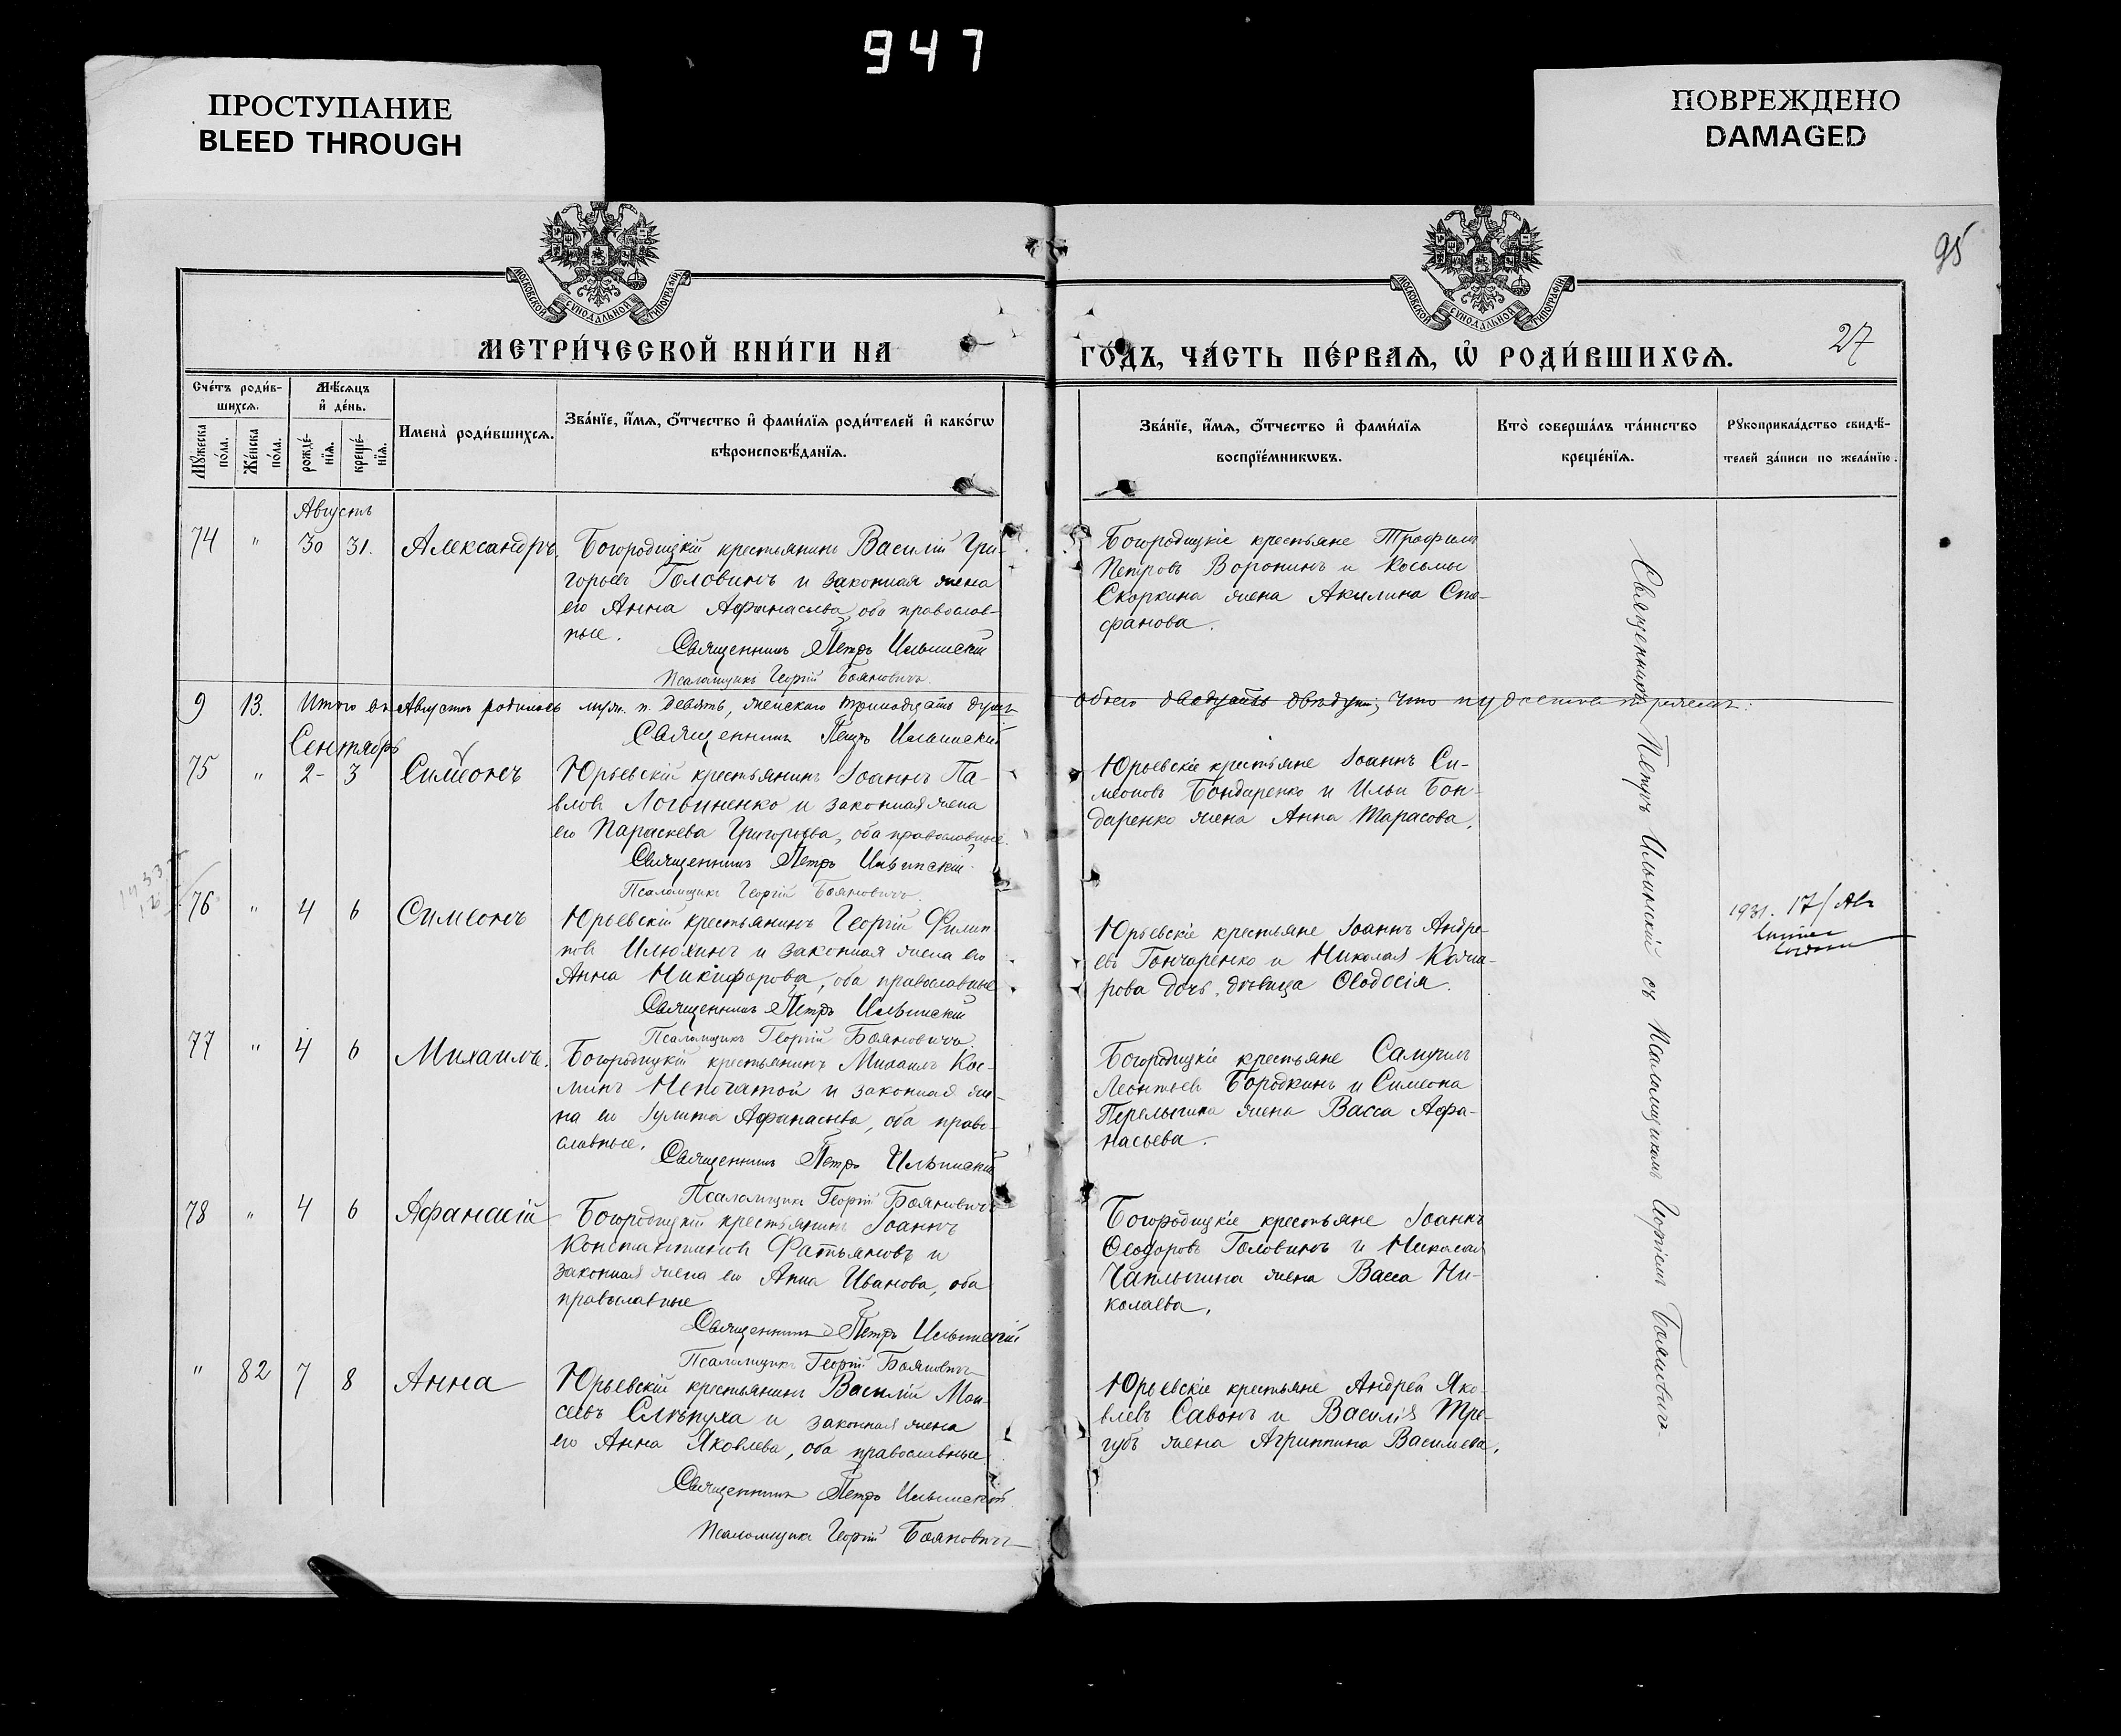 947
ПРОСТУПАНИЕ
BLEED THROUGH
ПОВРЕЖДЕНО
DAMAGED
95
МОСКОВСКОЙ СѴНОДАЛЬНОЙ ТИПОГРАФІИ
МОСКОВСКОЙ СѴНОДАЛЬНОЙ ТИПОГРАФІИ
МЕТРИ́ЧЕСКОЙ КНИ́ГИ НА
ГО́ДЪ, ЧА́СТЬ ПЕ́РВАЯ, Ѡ҆ РОДИ́ВШИХСЯ.
27
Сче́тъ роди́в-
шихся.
Мѣ́сяцъ
и҆ де́нь.
Мꙋ́жеска по́ла.
Же́нска по́ла.
рожде́-
нїя.
креще́-
нїя.
Имена̀ роди́вшихся.
Зва́нїе, и҆́мя, ѻ҆́тчество и҆ фами́лїя роди́телей и҆ како́гѡ
вѣроисповѣ́данїя.
Зва́нїе, и҆́мя, ѻ҆́тчество и҆ фами́лїя
воспрїе́мникѡвъ.
Кто̀ соверша́лъ та́инство
креще́нїя.
Рꙋкоприкла́дство свидѣ́-
телей за́писи по жела́нїю.
Августъ
74 " 30 31. Александръ.
Богородицкій крестьянинъ Василій Гри-
горьевъ Головинъ и законная жена
его Анна Афанасьева, оба православ-
ные.
Священникъ Петръ Ильинскій
Псаломщикъ Георгій Бояновичъ.
Богородицкіе крестьяне Трофимъ
Петровъ Воронинъ и Косьмы
Скоркина жена Акилина Сте-
фанова.
9 13. Итого въ Августѣ родилось муж. п. девять, женскаго тринадцать душъ
обоего двадцать двѣ души, что
Священникъ Петръ Ильинскій
Сентябрь
75 " 2 3 Симеонъ
Юрьевскій крестьянинъ Іоаннъ Па-
вловъ Логвиненко и законная жена
его Параскева Григорьева, оба православные.
Священникъ Петръ Ильинскій.
Псаломщикъ Георгій Бояновичъ.
Юрьевскіе крестьяне Іоаннъ Си-
меоновъ Бондаренко и Ильи Бон-
даренко жена Анна Тарасова.
1933
76 " 4 6 Симеонъ
Юрьевскій крестьянинъ Георгій Филип-
повъ Илюхинъ и законная жена его
Анна Никифорова, оба православные
Священникъ Петръ Ильинскій
Псаломщикъ Георгій Бояновичъ.
Юрьевскіе крестьяне Іоаннъ Андре-
евъ Гончаренко и Николая
рова дочь, дѣвица Ѳеодосія.
1931. 17/
77 " 4 6 Михаилъ.
Богородицкій крестьянинъ Михаилъ Кос-
минъ Непочатой и законная же-
на его Іулита Афанасьева, оба право-
славные.
Священникъ Петръ Ильинскій
Псаломщикъ Георгій Бояновичъ
Богородицкіе крестьяне Самуилъ
Леонтьевъ Бородкинъ и Симеона
Перелыгина жена Васса Афа-
насьева.
78 " 4 6 Афанасій
Богородицкій крестьянинъ Іоаннъ
Константиновъ Фатьяновъ и
законная жена его Анна Иванова, оба
православные
Священникъ Петръ Ильинскій
Псаломщикъ Георгій Бояновичъ
Богородицкіе крестьяне Іоаннъ
Ѳеодоровъ Головинъ и Николая
Чаплыгина жена Васса Ни-
колаева.
" 82 7 8 Анна
Юрьевскій крестьянинъ Василій Мои-
сеевъ Слѣпуха и законная жена
его Анна Яковлева, оба православные.
Священникъ Петръ Ильинскій.
Псаломщикъ Георгій Бояновичъ
Юрьевскіе крестьяне Андрей Яко-
влевъ Савонъ и Василія Тре-
губъ жена Агриппина Васильева.
Священникъ Петръ Ильинскій съ Псаломщикомъ Георгіемъ Бояновичъ